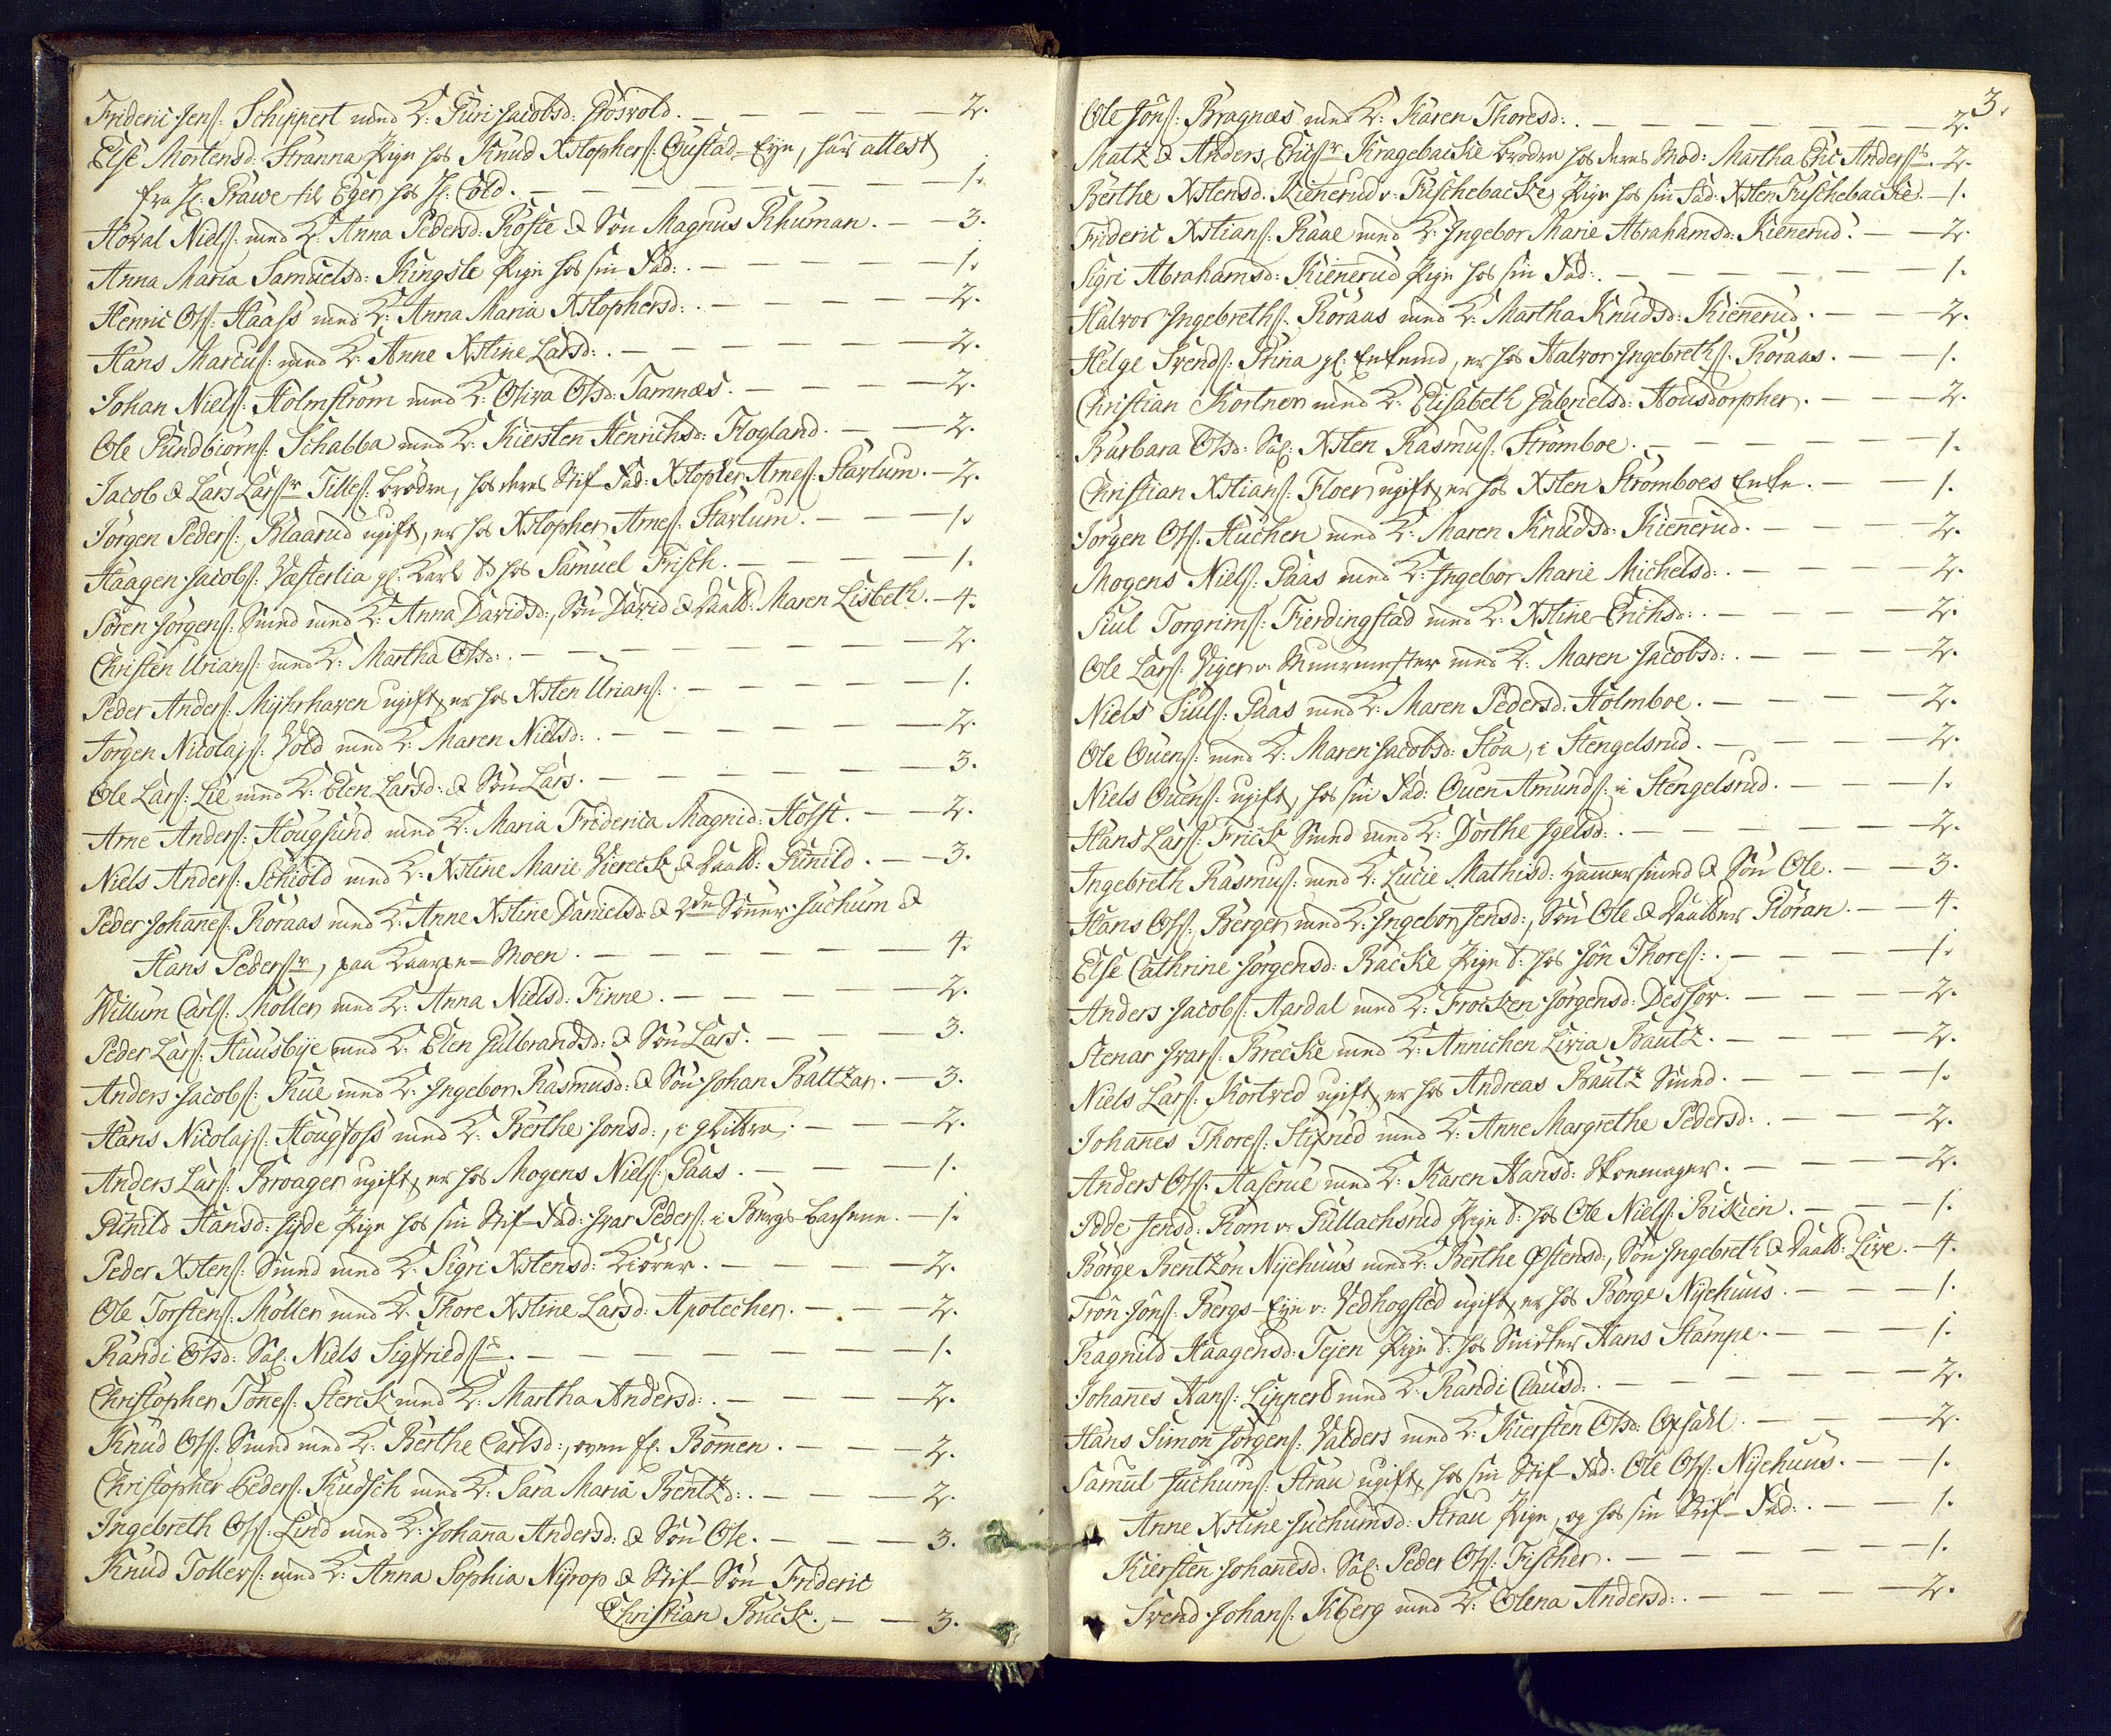 Frideric Jenß: Schippert med K: Guri Jacobsd: Josvold. — 2.
Else Mortensd: Stranna Pige hos Knud Xstopherß: Gustad-Eye, har attest
fra H: Prawe til Eger hos H: Cold. — 1.
Hoval Nielß: med K: Anna Pedersd: Röfte & Søn Magnus Rhuman. — 3.
Anna Maria Samuelsd: Kingsle Pige hos sin Fad:. — 1.
Henric Olß: Haass med K: Anna Maria Xstophersd:. — 2.
Hans Marcuß: med K: Anne Xstine Larsd:. — 2.
Johan Nielß: Holmström med K: Oliva Olsd: Tamnæs. — 2.
Ole Gundbiörnß: Schabba med K: Kiersten Henrichsd: Flogland. — 2.
Jacob & Lars Larßr Tilleß: brødre, hos deres Stif-Fad: Xstopher Arneß: Starlum. — 2.
Jörgen Pederß: Blaarud ugift, er hos Xstopher Arneß: Starlum. — 1.
Haagen Jacobß: Væsterlia gl: Karl t: hos Samuel Frisch. — 1.
Sören Jörgenß: Smed med K: Anna Davidsd:, Søn David & Daatt: Maren Lisbeth. — 4.
Christen Urianß: med K: Martha Olsd:. — 2.
Peder Anderß: Myhrhaven ugift, er hos Xsten Urianß:. — 1.
Jörgen Nicolajß: Vold med K: Maren Nielsd:. — 2.
Ole Larß: Lie med K: Elen Larsd: & Søn Lars. — 3.
Arne Anderß: Hougsund med K: Maria Friderica Magnid: Holst. — 2.
Niels Anderß: Schiöld med K: Xstine Marie Viereck & Daatt: Gunild. — 3.
Peder Johaneß: Röraas med K: Anne Xstine Danielsd: & 2de Sønner Juchum &
Hans Pederßr, paa Kaarpe-Moen. — 4.
Willum Carlß: Möller med K: Anna Nielsd: Finne. — 2.
Peder Larß: Huusbye med K: Elen Gulbrandsd: & Søn Lars. — 3.
Anders Jacobß: Rue med K: Ingebor Rasmusd: & Søn Johan Baltzar. — 3.
Hans Nicolajß: Hougfoss med K: Berthe Jonsd:, i Glittre. — 2.
Anders Larß: Broager ugift, er hos Mogens Nielß: Paas. — 1.
Gunild Hansd: Hyde Pige hos sin Stif-Fad: Ivar Pederß: i Bergs-Bachene. — 1.
Peder Xstenß: Smed med K: Sigri Xstensd: Kiörer. — 2.
Ole Torstenß: Möller med K: Thore Xstine Larsd: Apotecher. — 2.
Randi Olsd: Sal: Niels Sigfriedßs. — 1.
Christopher Töneß: Sterck med K: Martha Andersd:. — 2.
Knud Olß: Smed med K: Berthe Carlsd:, oven fl: Bommen. — 2.
Christopher Pederß: Kudsch med K: Sara Maria Bentzd:. — 2.
Ingebreth Olß: Lind med K: Johanna Andersd: & Søn Ole. — 3.
Knud Tollevß: med K: Anna Sophia Nyrop & Stif-Søn Frideric
Christian Buck. — 3.
3.
Ole Jönß: Bragnæs med K: Karen Thoresd:. — 2.
Matz & Anders Ericßr Kragebacke brødre hos deres Mod: Martha Eric Anderßs. — 2.
Berthe Xstensd: Kienerud v: Tuschebacke, Pige hos sin Fad: Xsten Tuschebacke. — 1.
Frideric Xstianß: Raae med K: Ingebor Marie Abrahamsd: Kienerud. — 2.
Sigri Abrahamsd: Kienerud Pige hos sin Fad:. — 1.
Halvor Ingebrethß: Röraas med K: Martha Knudsd: Kienerud. — 2.
Helge Svendß: Prina gl: Enkemd, er hos Halvor Ingebrethß: Röraas. — 1.
Christian Kortner med K: Elisabeth Gabrielsd: Housdorpher. — 2.
Barbara Olsd: Sal: Xsten Rasmuß: Strömboe. — 1.
Christian Xstianß: Floer ugift, er hos Xsten Strömboes Enke. — 1.
Jörgen Olß: Kuchen med K: Maren Knudsd: Kienerud. — 2.
Mogens Nielß: Paas med K: Ingebor Marie Michelsd:. — 2.
Siul Torgrimß: Fierdingstad med K: Xstine Erichsd:. — 2.
Ole Larß: Viger v: Muurmester med K: Maren Jacobsd:. — 2.
Niels Siulß: Paas med K: Maren Pedersd: Holmboe. — 2.
Ole Ouenß: med K: Maren Jacobsd: Stoa, i Stengelsrud. — 2.
Niels Ouenß: ugift, hos sin Fad: Ouen Amundß: i Stengelsrud. — 1.
Hans Larß: Frick Smed med K: Dorthe Igelsd:. — 2.
Ingebreth Rasmuß: med K: Lucie Mathisd: Hammersmed & Søn Ole. — 3.
Hans Olß: Berger med K: Ingebor Jensd:, Søn Ole & Daatter Göran. — 4.
Else Cathrine Jörgensd: Backe Pige t: hos Jön Thoreß:. — 1.
Anders Jacobß: Aardal med K: Frocken Jörgensd: Dessov. — 2.
Stenar Ivarß: Brecke med K: Annichen Livia Bautz. — 2.
Niels Larß: Kortved ugift, er hos Andreas Bautz Smed. — 1.
Johannes Thoreß: Stifried med K: Anne Margrethe Pedersd:. — 2.
Anders Olß: Aaserue med K: Karen Hansd: Skoemager. — 2.
Pode Jensd: Rom v: Gullachsrud Pige t: hos Ole Nielß: Biskien. — 1.
Börge Bentzön Nyehuus med K: Berthe Østensd:, Søn Ingebreth & Daatt: Live. — 4.
Trön Jönß: Bergs-Eye v: Vedhogsted ugift, er hos Börge Nyehuus. — 1.
Ragnild Haagensd: Tejen Pige t: hos Snicker Hans Stampe. — 1.
Johanes Hanß: Lippert med K: Randi Clausd:. — 2.
Hans Simon Jörgenß: Valders med K: Kiersten Olsd: Opsahl. — 2.
Samuel Juchumß: Strau ugift, hos sin Stif-Fad: Ole Olß: Nyehuus. — 1.
Anne Xstine Juchumsd: Strau Pige, og hos sin Stif-Fad:. — 1.
Kiersten Johanesd: Sal: Peder Olß: Fischer. — 1.
Svend Johanß: Kberg med K: Olena Andersd:. — 2.